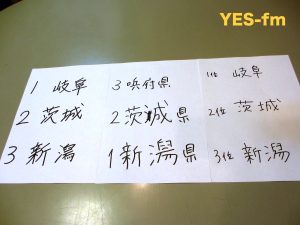 YES-fm
1 岐阜
2 茨城
3 新潟
3 県
2 茨城県
1 新潟県
1位 岐阜
2位 茨城
3位 新潟